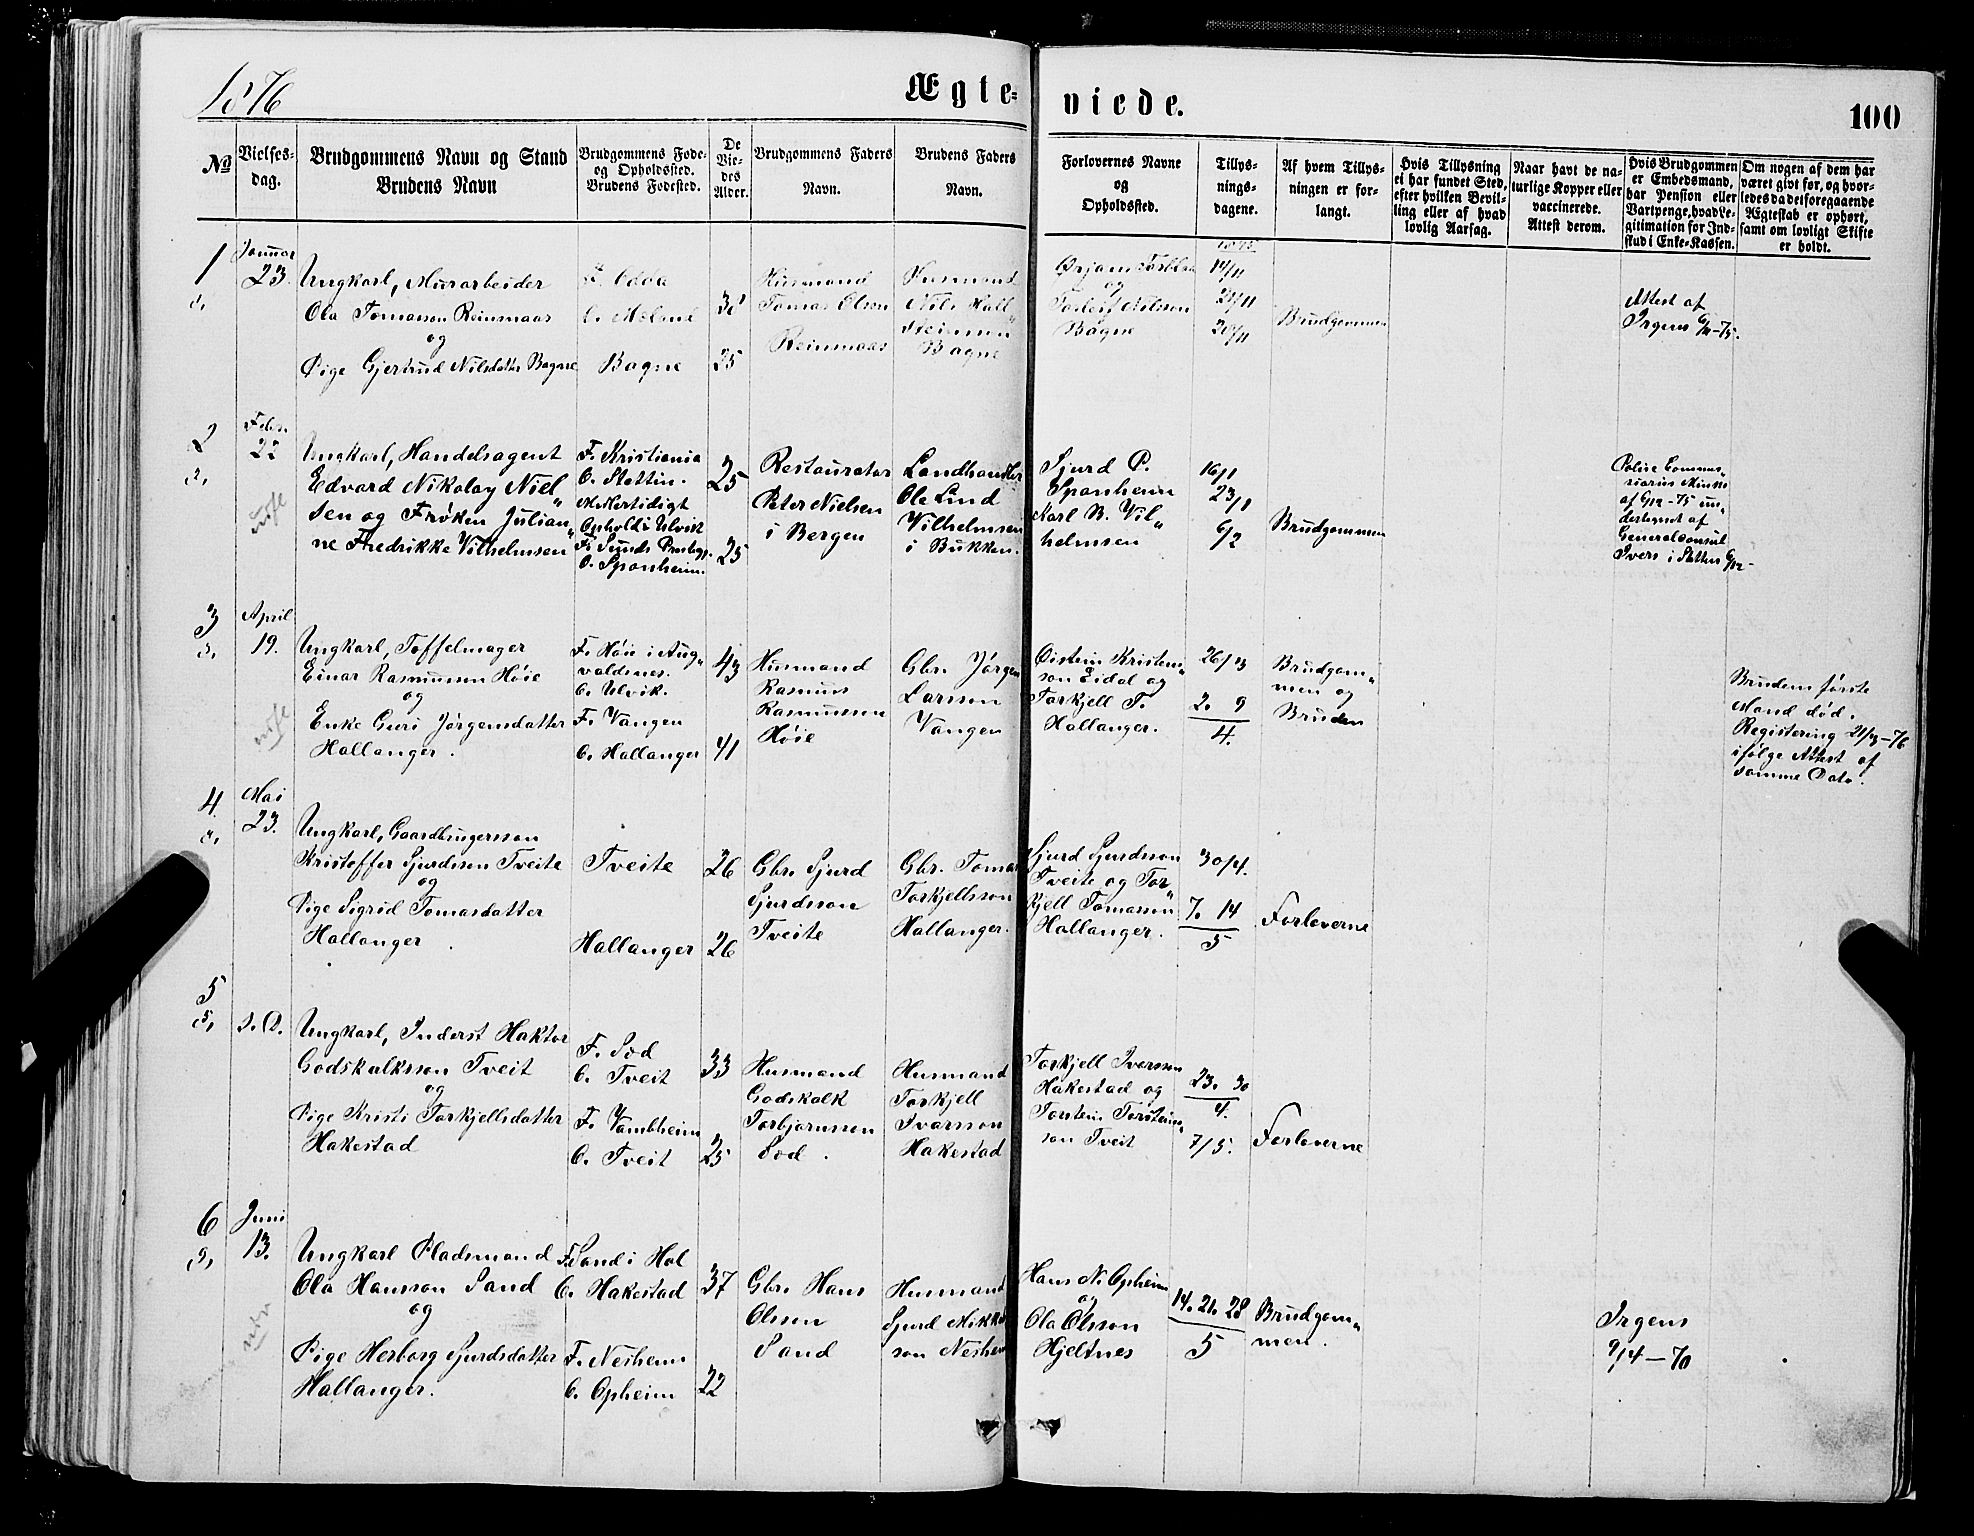 1876
Ægte-
viede.
100
No
Vielses-
dag.
Brudgommens Navn og Stand
Brudens Navn
Brudgommens Føde-
og Opholdssted.
Brudens Fødested.
De
Vie-
des
Alder.
Brudgommens Faders
Navn.
Brudens Faders
Navn.
Forlovernes Navne
og
Opholdssted.
Tillys-
nings-
dagene.
Af hvem Tillys-
ningen er for-
langt.
Hvis Tillysning
ei har fundet Sted,
efter hvilken Bevil-
ling eller af hvad
lovlig Aarsag.
Naar havt de na-
turlige Kopper eller
vaccinerede.
Attest derom.
Hvis Brudgommen
er Embedsmand,
har Pension eller
Vartpenge, hvad Le-
gitimation for Ind-
skud i Enke-Kassen.
Om nogen af dem har
været givt før, og hvor-
ledes da det foregaaende
Ægteskab er ophørt,
samt om lovligt Skifte
er holdt.
1
Januar
23.
Ungkarl, Murarbeider
Ola Tomasson Reinmaas
og
Pige Gjertrud Nilsdatter Bagne
F. Odda
Bagne
25
Husmand
Tomas Olson
Reinmaas
Husmand
Nils Hall"
steinson
Bagne
og
Bagne
14/11
21/11
Brudgommen
Attest af
2
Febr.
22
Ungkarl, Handelsagent
Edvard Nikolay Niel"
sen og Frøken Julian"
ne Fredrikke Vilhelmsen
F. Kristiania
O. Stettin.
Midlertidigt
Ophold i Ulvik
F. Sunds Præstegj.
O. Sponheim.
25
25
Restauratør
Peter Nielsen
i Bergen
Landhandler
Ole Lind
Vilhelmsen
i Bukken.
Sjurd P.
Sponheim
Karl B. Vil"
helmsen
16/1
23/1
6/2
Brudgommen
af 6/12-75 un"
dertegnet af
Generalconsul
3
April
19.
Ungkarl, Tøffelmager
Einar Rasmussen Høie
og
Enke Guri Jørgensdatter
Hallanger.
F. Høie i Aug"
valdsnes.
O. Ulvik.
F. Vangen
O. Hallanger
43
41
Husmand
Rasmus
Rasmussen
Høie
Gbr. Jørgen
Larsson
Vangen
Øistein Kristen"
son Eidal og
Torkjell T.
Hallanger.
26/3
2. 9
4.
Brudgom"
men og
Bruden
Brudens første
Mand død.
Registering 21/3-76
ifølge Attest af
samme Dato.
4.
Mai
23.
Ungkarl, Gaardbrugersson
Kristoffer Sjurdsson Tveite
og
Pige Sigrid Tomasdatter
Hallanger.
Tveite
Hallanger
26
26
Gbr. Sjurd
Sjurdsson
Tveite
Gbr. Tomas
Torkjellsson
Hallanger.
Sjurd Sjurdsson
Tveite og Tor"
kjell Tomasson
Hallanger.
30/4.
7. 14
5
Forloverne
5
s. D.
Ungkarl, Inderst Haktor
Godskalksson Tveit
og
Pige Kristi Torkjellsdatter
Hakestad
F. Sød
O. Tveit
F. Vambheim
O. Tveit
33
25
Husmand
Godskalk
Torbjørnsson
Sød.
Husmand
Torkjell
Ivarsson
Hakestad
Torkjell Iversson
Hakestad og
Torstein Torstein"
son Tveit
23. 30
4.
7/5.
Forloverne
6
Juni
13.
Ungkarl Pladsmand
Ola Hansson Sand
og
Pige Herborg Sjurdsdatter
Hallanger.
F. Sand i Hol
O. Hakestad
F. Nesheim
O. Opheim
37
22
Gbr. Hans
Olsson
Sand
Husmand
Sjurd Mikkel
son Nesheim
Hans N. Opheim
og
Ola Olsson
Hjeltnes
14. 21. 28
5
Brudgom"
men.
Irgens
9/4-70